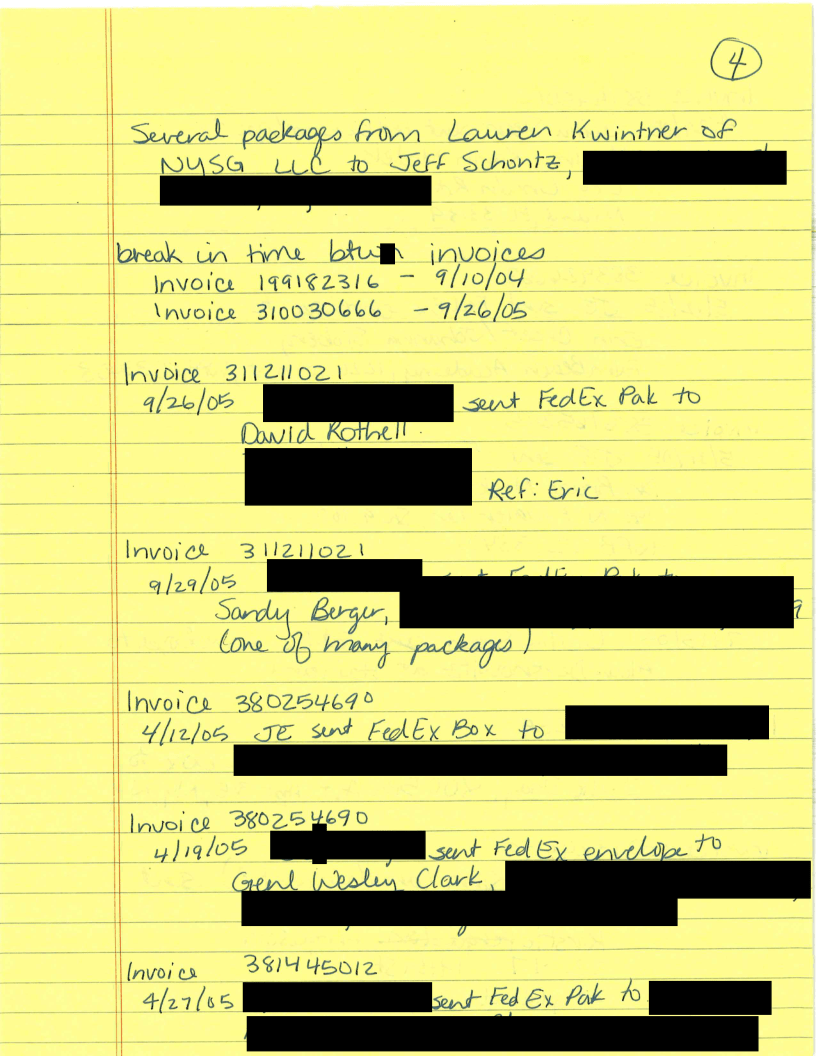 4
Several packages from Lauren Kwintner of
NYSG LLC to Jeff Schontz,
break in time btwn invoices
Invoice 199182316 - 9/10/04
Invoice 310030666 - 9/26/05
Invoice 311211021
9/26/05 sent FedEx Pak to
David Rothell
Ref: Eric
Invoice 311211021
9/29/05 sent FedEx Pak to
Sandy Berger,
(one of many packages)
Invoice 380254690
4/12/05 JE sent FedEx Box to
Invoice 380254690
4/19/05 sent FedEx envelope to
Genl Wesley Clark,
Invoice 381445012
4/27/05 sent FedEx Pak to